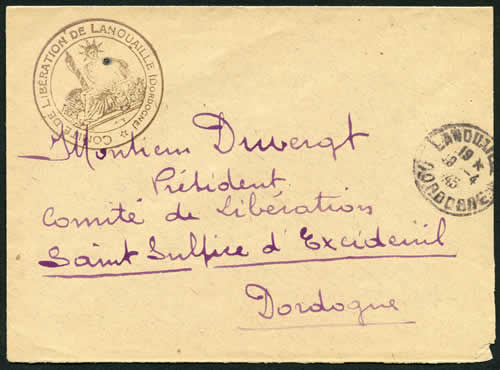 COMITÉ DE LIBÉRATION DE LANOUAILLE (DORDOGNE)
Monsieur Duvergt
Président
Comité de Libération
Saint Sulpice d'Excideuil
Dordogne
LANOUAILLE
19 *
-4
45
DORDOGNE